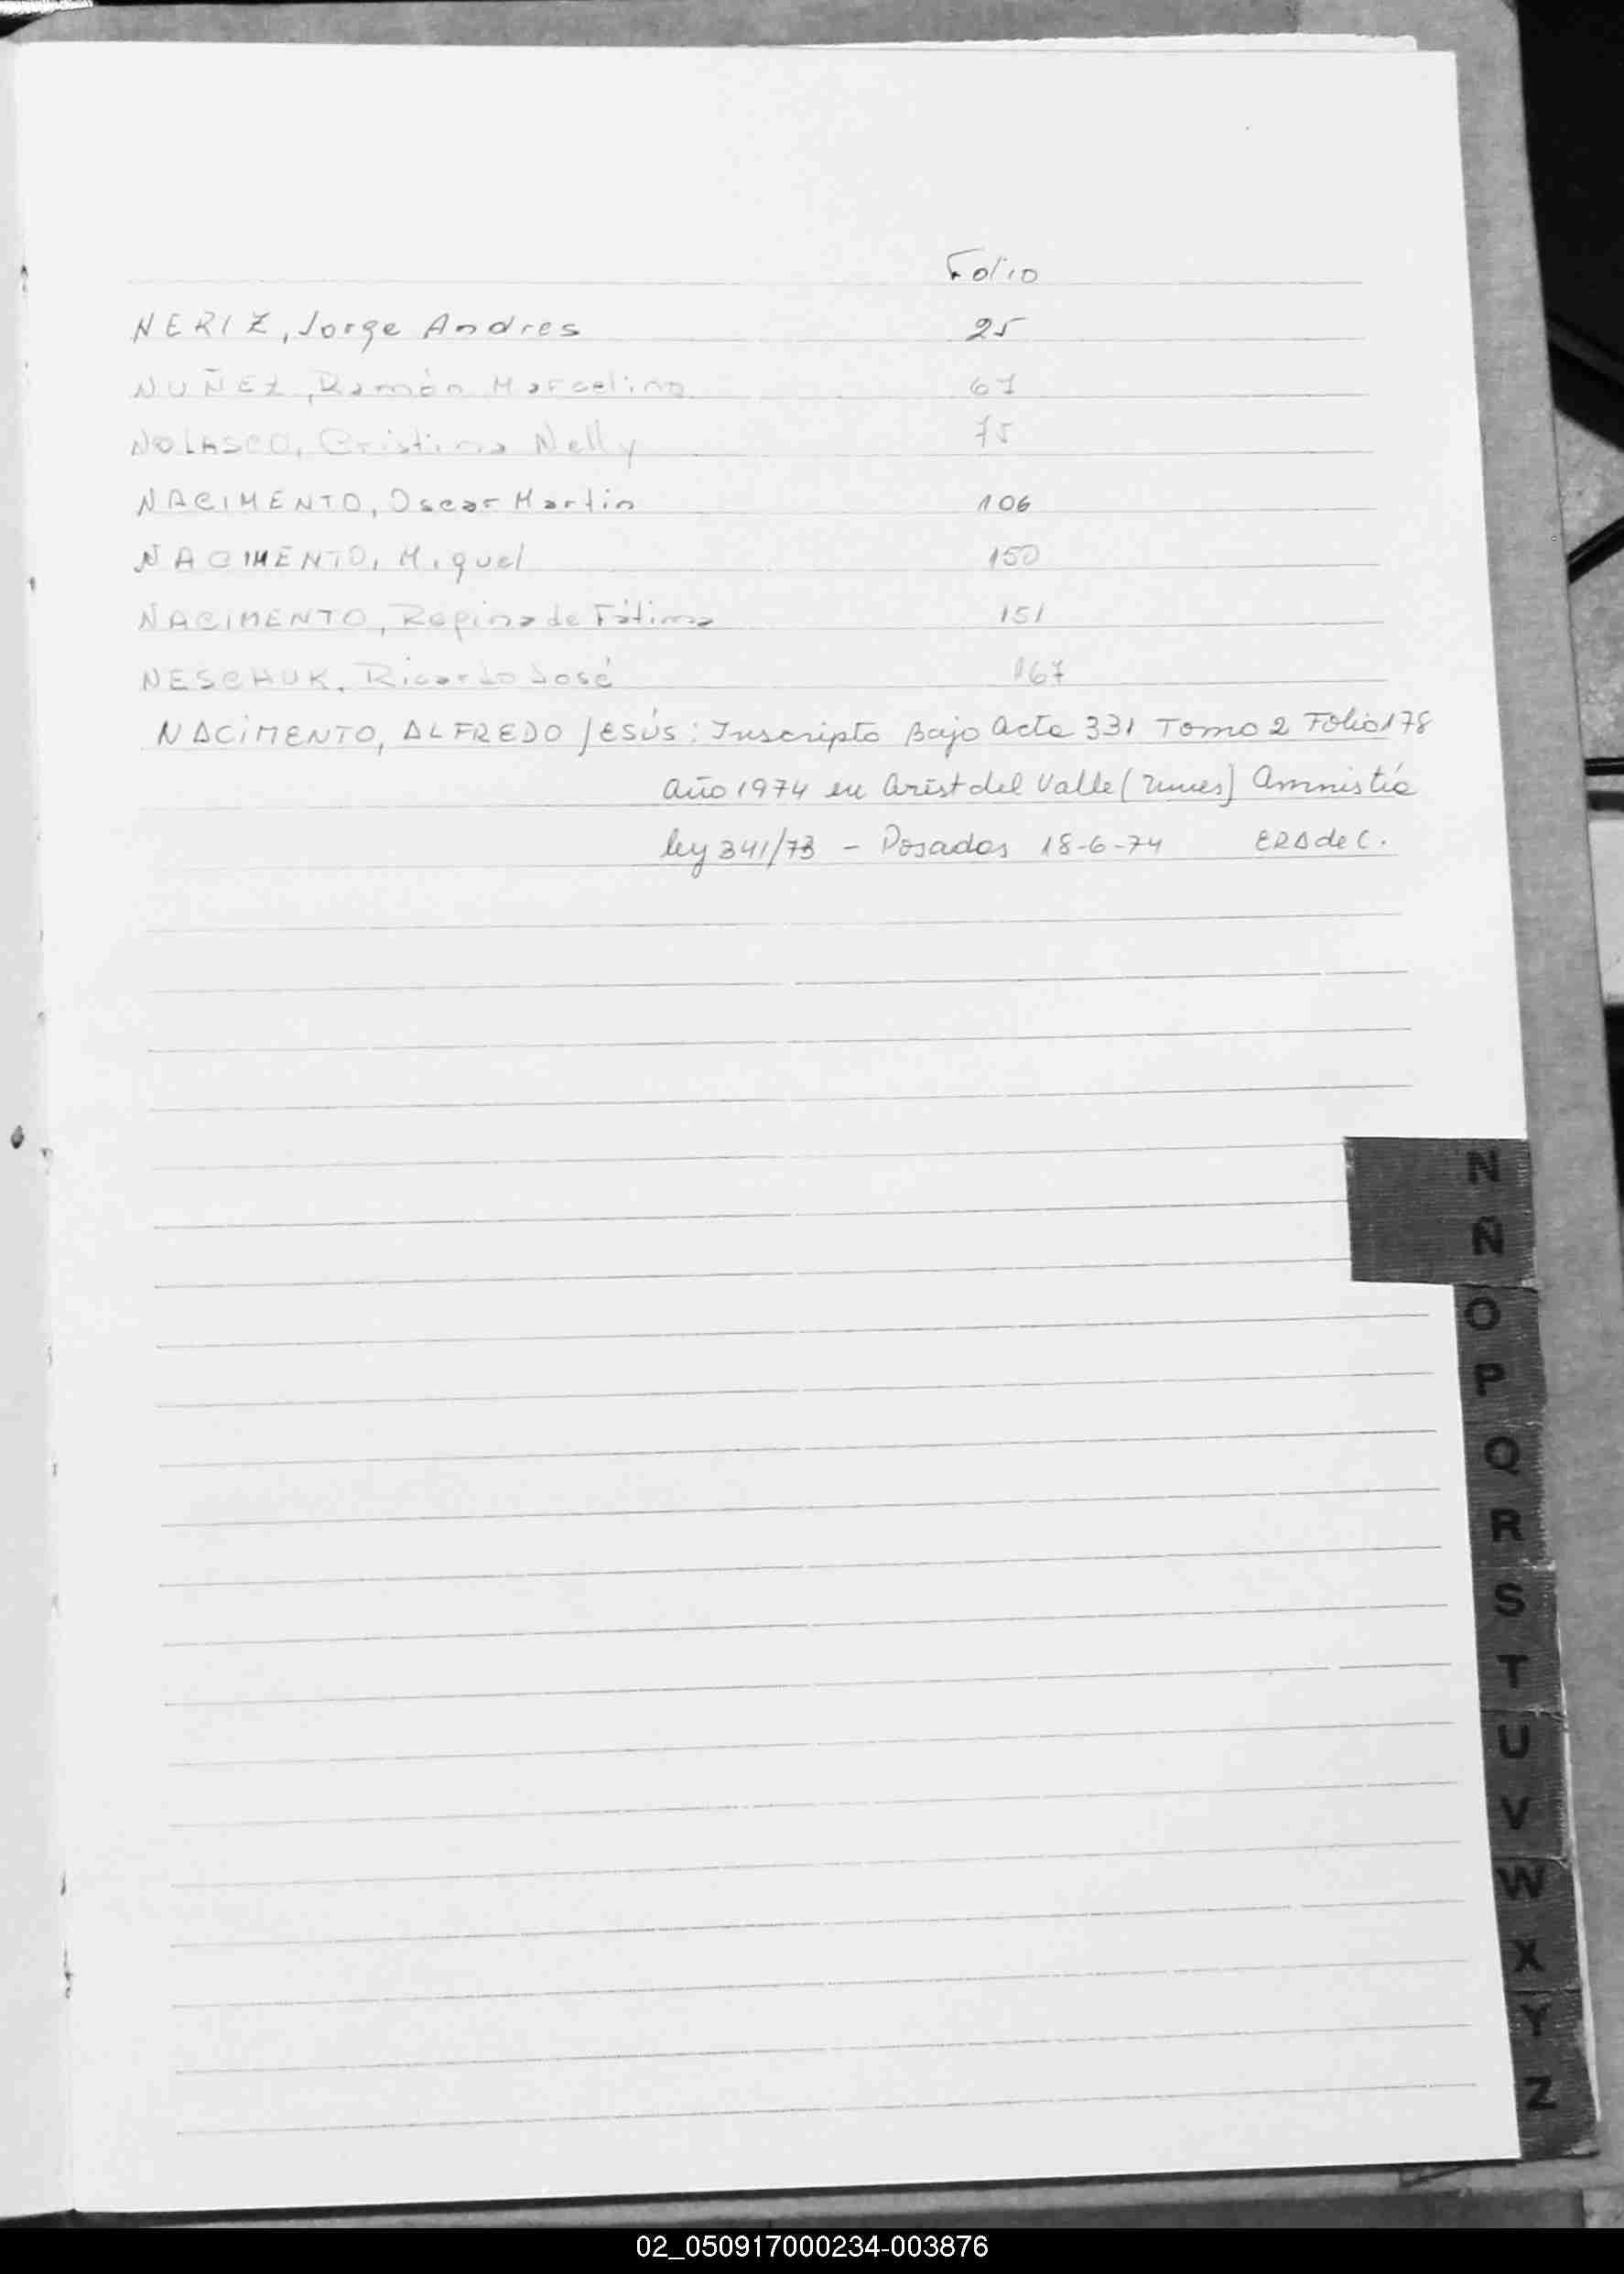 Folio
NERIZ, Jorge Andres 25
NUÑEZ, Ramón Marcelino 67
NOLASCO, Cristina Nelly 75
NACIMENTO, Oscar Martin 106
NACIMENTO, Miguel 150
NACIMENTO, Regina de Fátima 151
NESCHUK, Ricardo José 167
NACIMENTO, ALFREDO JESÚS: Inscripto Bajo Acta 331 Tomo 2 Folio 178
Año 1974 en Arist del Valle ( ) Amnistía
ley 341/73 - Posadas 18-6-74
N
Ñ
O
P
Q
R
S
T
U
V
W
X
Y
Z
02_050917000234-003876